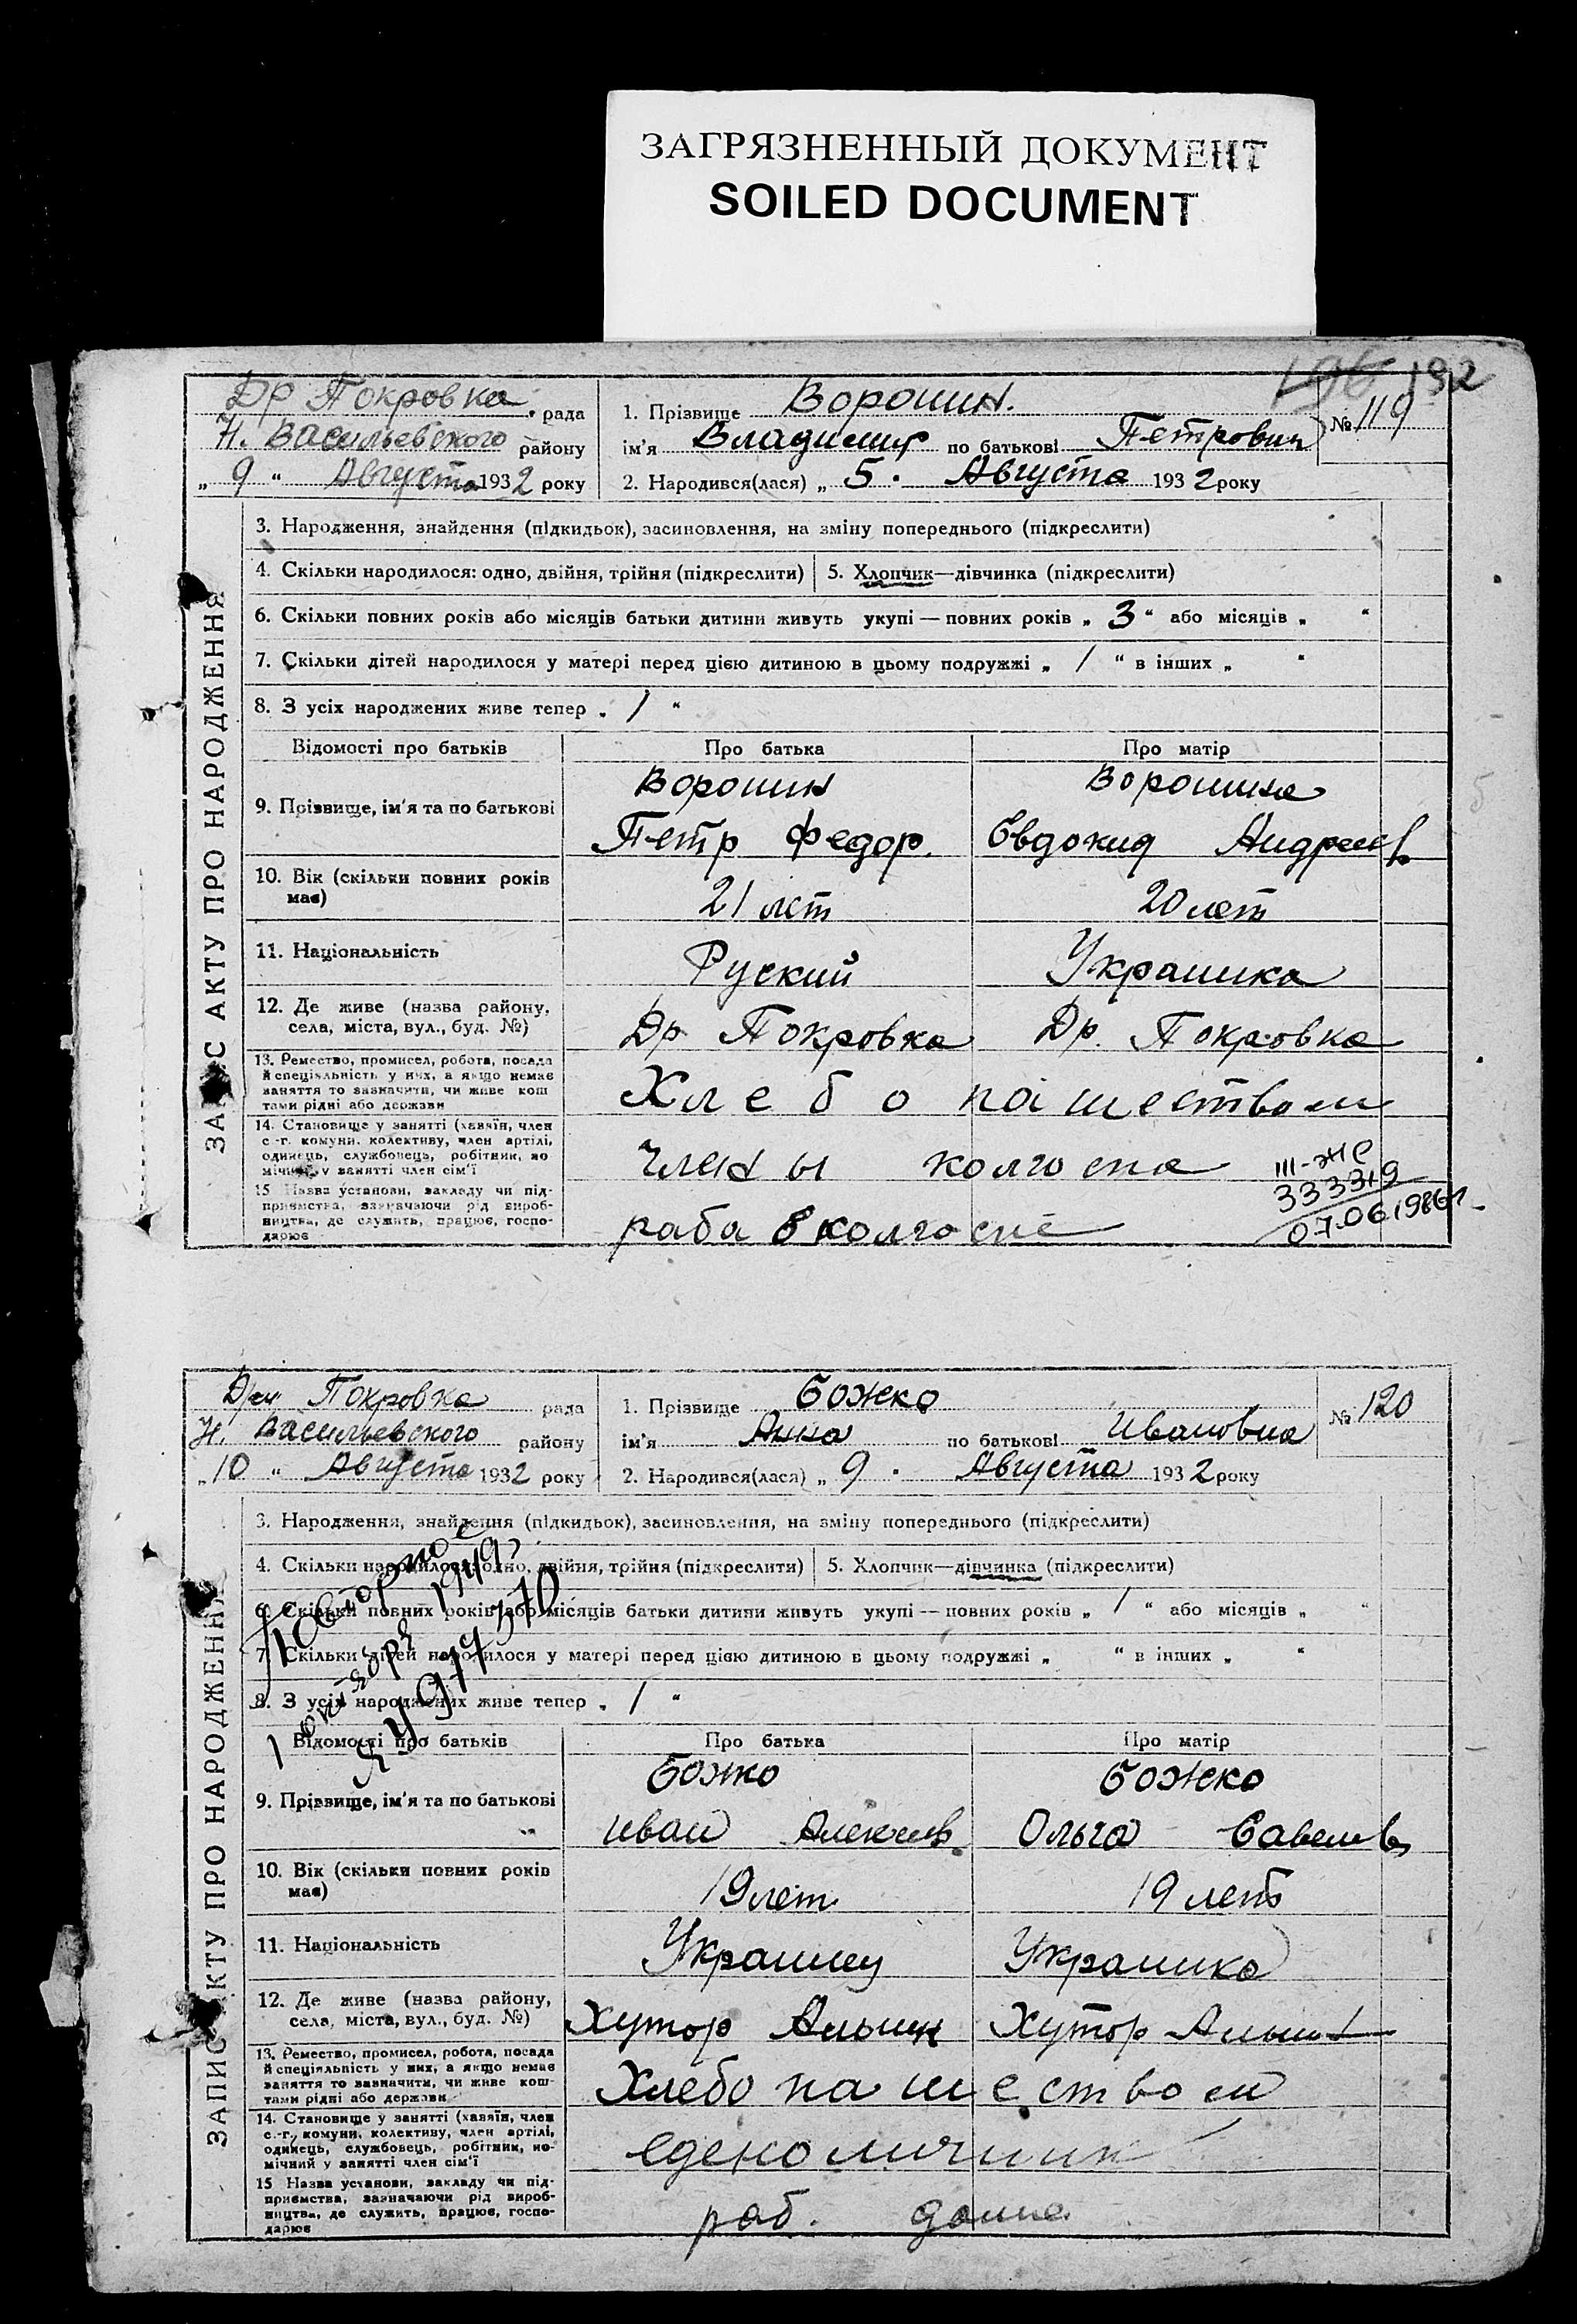 ЗАГРЯЗНЕННЫЙ ДОКУМЕНТ
SOILED DOCUMENT
192
Др Покровка рада
Н. Васильевского району
„ 9 “ Августа 1932 року
1. Прізвище Воронин.
ім'я Владимир по батькові Петрович
№ 119
2. Народився(лася) „ 5 . Августа 1932 року
ЗАПИС АКТУ ПРО НАРОДЖЕННЯ
3. Народження, знайдення (підкидьок), засиновлення, на зміну попереднього (підкреслити)
4. Скільки народилося: одно, двійня, трійня (підкреслити)
5. Хлопчик—дівчинка (підкреслити)
6. Скільки повних років або місяців батьки дитини живуть укупі — повних років „ 3 “ або місяців „ “
7. Скільки дітей народилося у матері перед цією дитиною в цьому подружжі „ 1 “ в інших „ “
8. З усіх народжених живе тепер „ 1 “
Відомості про батьків
Про батька
Про матір
9. Прізвище, ім'я та по батькові
Воронин
Петр Федор.
Воронина
Евдокия Андреев
10. Вік (скільки повних років
має)
21 лет
20 лет
11. Національність
Руский
Украинка
12. Де живе (назва району,
села, міста, вул., буд. №)
Др Покровка
Др. Покровка
13. Ремество, промисел, робота, посада
й спеціяльність у них, а якщо немає
заняття то зазначити, чи живе кош
тами рідні або держави
Хлебопашеством
14. Становище у занятті (хазяїн, член
с-г. комуни, колективу, член артілі,
одинець, службовець, робітник, по
мічний у занятті член сім'ї
члены колгоспа
15 Назва установи, закладу чи під-
приємства, зазначаючи рід вироб-
ництва, де служить, працює, госпо-
дарює
раба в колгоспе
III-ЖС
333319
Покровка рада
Н. Васильевского району
„ 10 “ Августа 1932 року
1. Прізвище Божко
ім'я Анна по батькові Ивановна
№ 120
2. Народився(лася) „ 9 . Августа 1932 року
ЗАПИС АКТУ ПРО НАРОДЖЕННЯ
3. Народження, знайдення (підкидьок), засиновлення, на зміну попереднього (підкреслити)
4. Скільки народилося: одно, двійня, трійня (підкреслити)
5. Хлопчик—дівчинка (підкреслити)
6. Скільки повних років або місяців батьки дитини живуть укупі — повних років „ 1 “ або місяців „ “
7. Скільки дітей народилося у матері перед цією дитиною в цьому подружжі „ “ в інших „ “
8. З усіх народжених живе тепер „ 1 “
Повторное
Відомості про батьків
Про батька
Про матір
9. Прізвище, ім'я та по батькові
Божко
Иван Алексеев
Божко
Ольга Савелев
10. Вік (скільки повних років
має)
19 лет
19 лет
11. Національність
Украинец
Украинка
12. Де живе (назва району,
села, міста, вул., буд. №)
Хутор
Хутор
13. Ремество, промисел, робота, посада
й спеціяльність у них, а якщо немає
заняття то зазначити, чи живе кош-
тами рідні або держави
Хлебопашеством
14. Становище у занятті (хазяїн, член
с.-г. комуни, колективу, член артілі,
одинець, службовець, робітник, по-
мічний у занятті член сім'ї
еденоличник
15 Назва установи, закладу чи під-
приємства, зазначаючи рід вироб-
ництва, де служить, працює, госпо-
дарює
раб. доме.